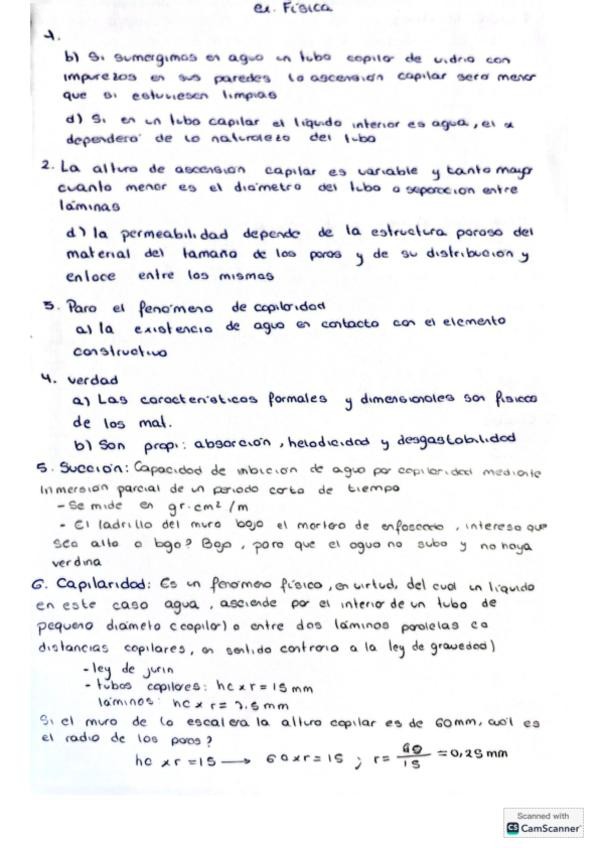 ex. Física
1.
b) Si sumergimos en agua un tubo capilar de vidrio con
impurezas en sus paredes la ascensión capilar sera menor
que si estuviesen limpias
d) Si en un tubo capilar el líquido interior es agua, el α
dependerá de la naturaleza del tubo
2. La altura de ascension capilar es variable y tanto mayor
cuanto menor es el diámetro del tubo o separacion entre
láminas
d) la permeabilidad depende de la estructura porosa del
material del tamaño de los poros y de su distribución y
enlace entre los mismos
3. Para el fenómeno de capilaridad
a) la existencia de agua en contacto con el elemento
constructivo
4. verdad
a) Las características formales y dimensionales son físicas
de los mat.
b) Son propi: absorción, heladicidad y desgastabilidad
5. Succión: Capacidad de imbicion de agua por capilaridad mediante
inmersión parcial de un periodo corto de tiempo
- Se mide en gr·cm² /m
- El ladrillo del muro bajo el mortero de enfoscado, interesa que
sea alta o baja? Baja, para que el agua no suba y no haya
verdina
6. Capilaridad: Es un fenomeno físico, en virtud, del cual un líquido
en este caso agua, asciende por el interior de un tubo de
pequeno diámeto (capilar) o entre dos láminas paralelas (a
distancias capilares, en sentido contrario a la ley de gravedad)
- ley de jurin
- tubos capilares: hc x r = 15 mm
láminas: hc x r = 7.5 mm
Si el muro de la escalera la altura capilar es de 60mm, cuál es
el radio de los poros?
hc x r = 15 → 60 x r = 15 ; r = 60/15 = 0,25 mm
Scanned with
CS CamScanner